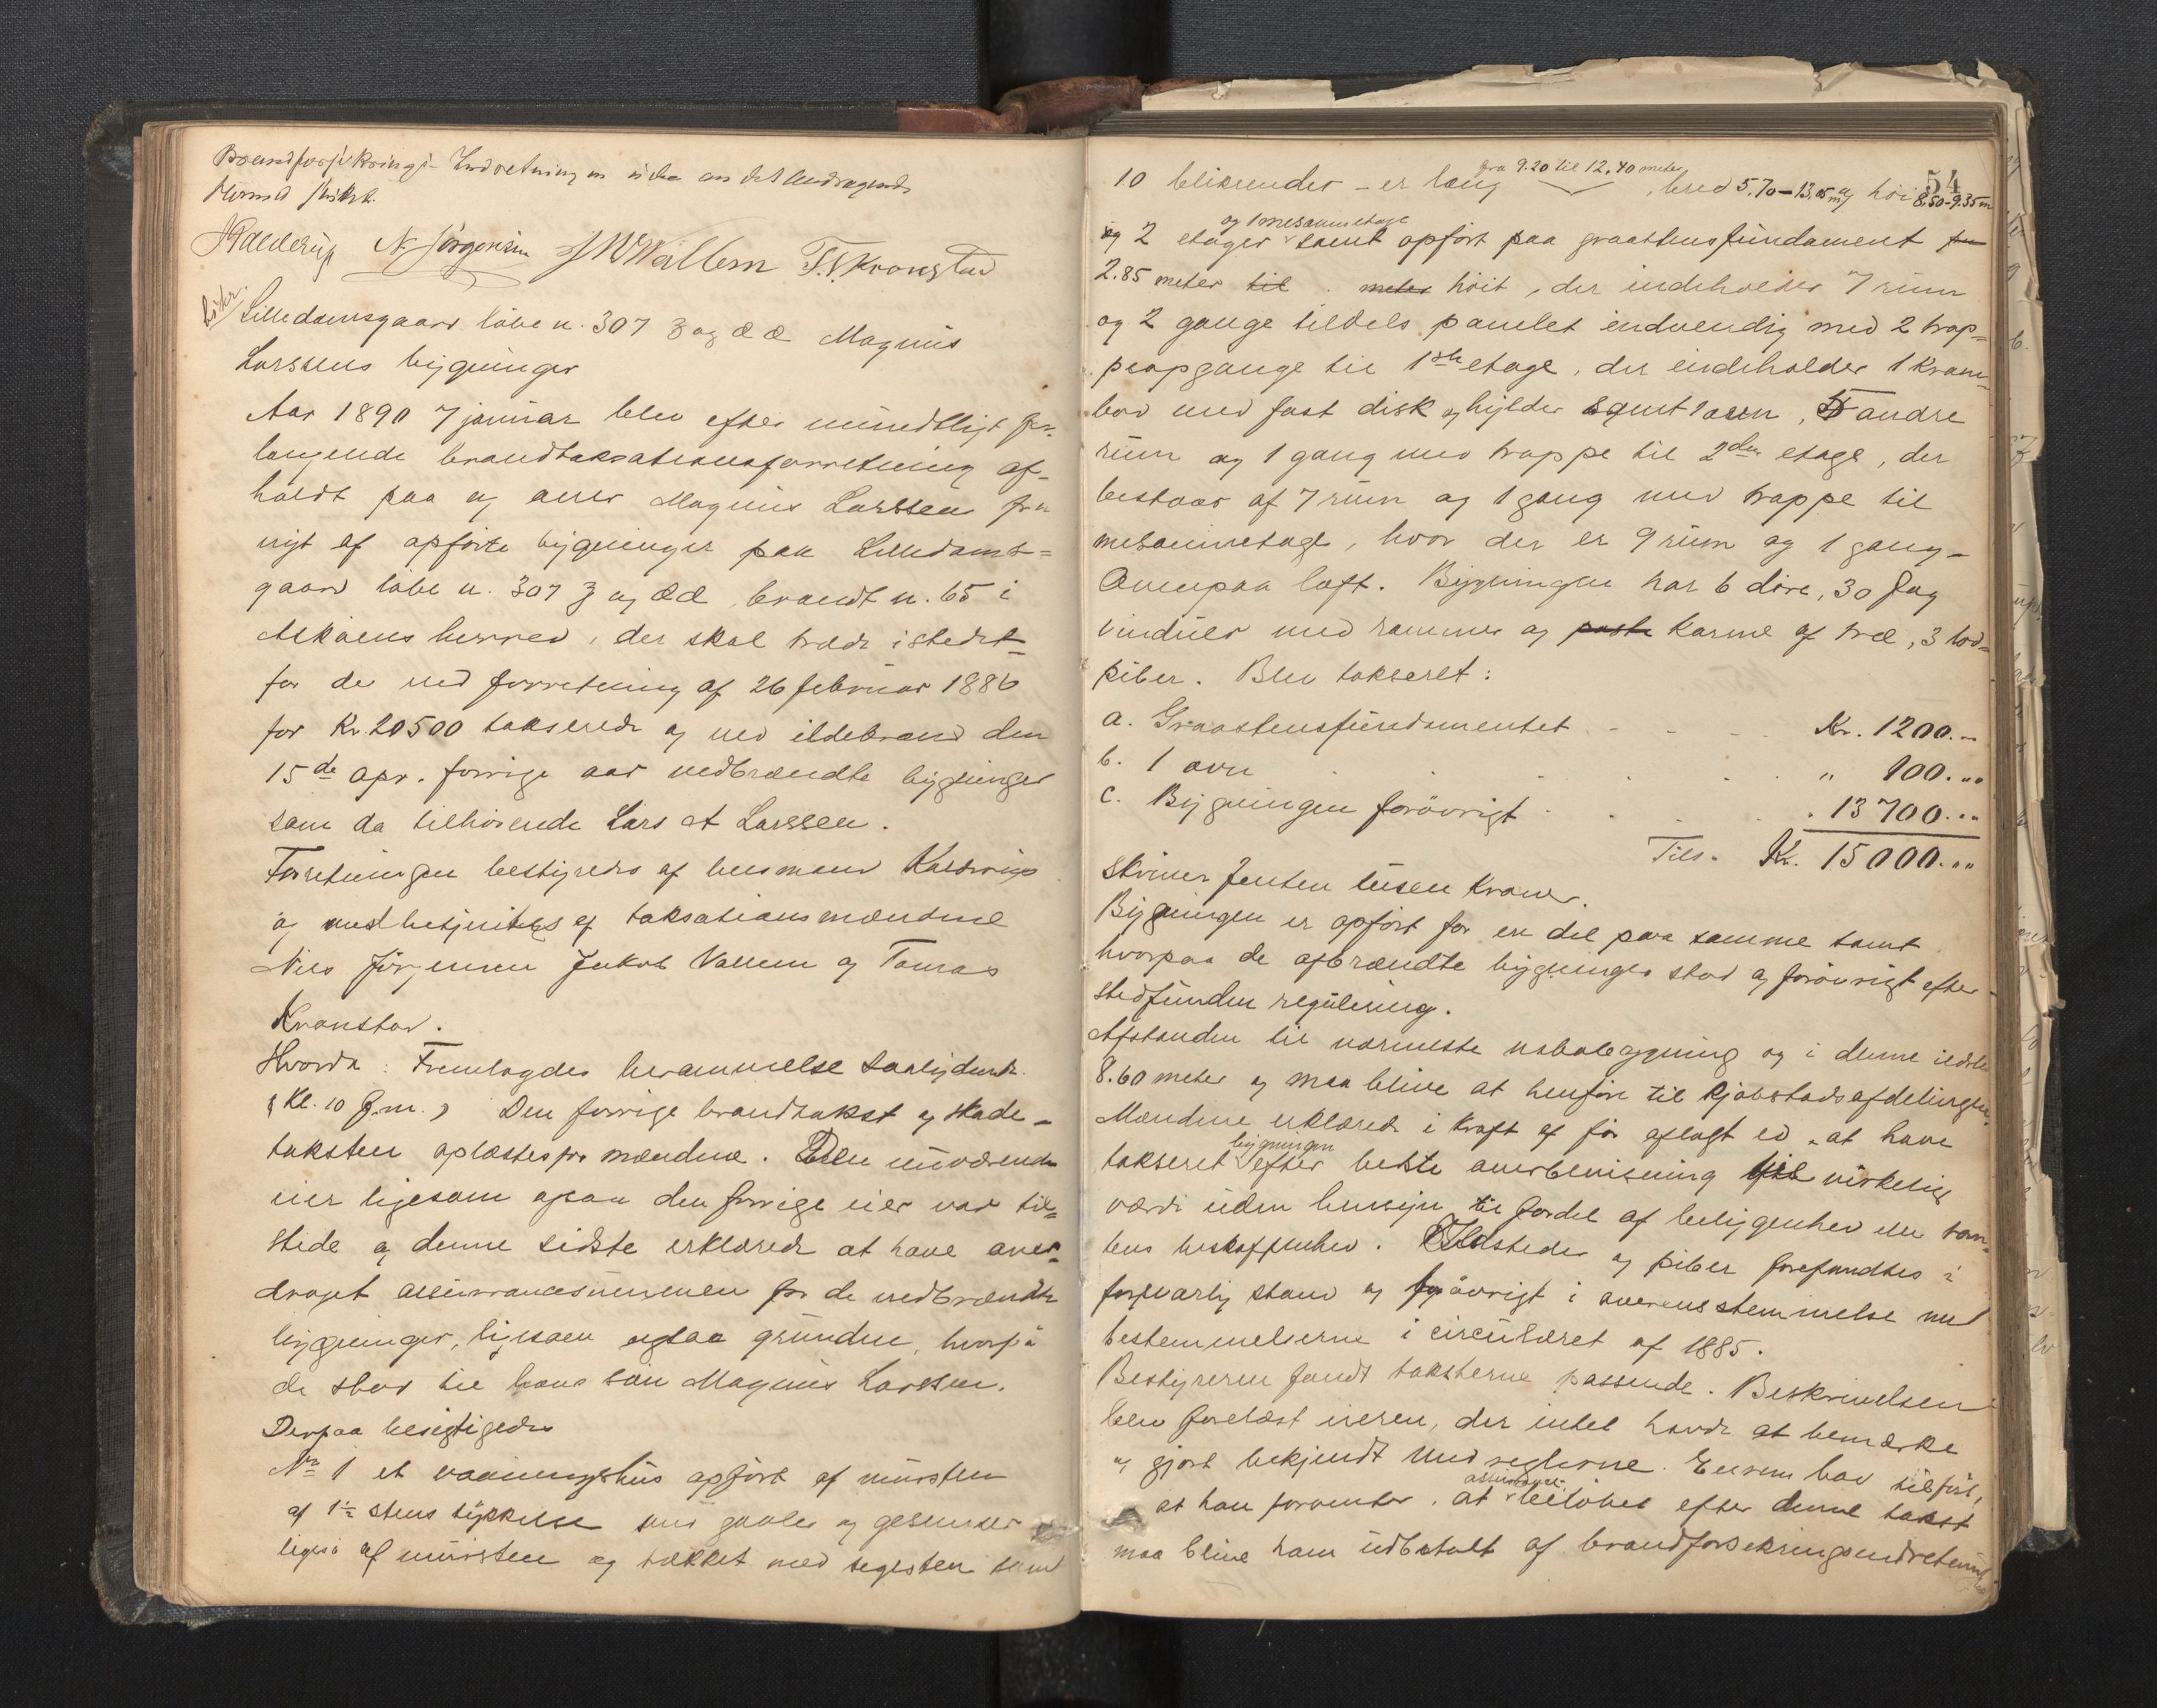 Brandforsikrings-Indretningen uden an
Kalderup N. Jörgensen J W Wallem T. T. Kronstad
Lilledamsgaard löbe n. 307 z og æ æ Magnus
Larssens bygninger
Aar 1890 7 januar blev efter mundtligt for-
langende brandtaksationsforretning af-
holdt paa og over Magnus Larssen fra
nyt af opförte bygninger paa Lilledams-
gaard löbe n. 307 z og ææ, brandt n. 65 i
Askøens herred, der skal træde istedet-
for de ved forretning af 26 februar 1886
for Kr. 20500 takserede og ved ildebrand den
15de apr. forrige aar nedbrændte bygninger
som da tilhörende Lars A Larssen.
Forretningen bestyredes af lensmand Kalderup
og medbetjentes af taksationsmændene
Nils Jörgensen Jakob Vallem og Tomas
Kronstad.
Hvorda: Fremlagdes berammelse saalydende
(Kl. 10 F.m.) Den forrige brandtakst og skade-
taksten oplæstes for mændene. Den nuværende
eier ligesom ogsaa den forrige eier var til-
stede og denne sidste erklærede at have over-
draget assurancesummen for de nedbrændte
bygninger, ligesom ogsaa grunden, hvorpå
de stod til hans sön Magnus Larssen.
Derpaa besigtigedes
No 1 et vaaningshus opfört af mursten
af 1½ stens tykkelse med gavle og gesimser
ligeså af mursten og tækket med tegelsten samt
54
10 blikrender - er lang fra 9.20 til 12.40 meter, bred 5.70-13,05 m og höi 8,50-9.35 m
og 2 etager og 1 mesaninetage samt opfört paa graastensfundament fra
2.85 meter til meter höit, der indeholder 7 rum
og 2 gange tildels panelet indvendig med 2 trap-
peopgange til 1ste etage, der indeholder 1 kram-
bod med fast disk og hylder samt 1 ovn, 5 andre
rum og 1 gang med trappe til 2den etage, der
bestaar af 7 rum og 1 gang med trappe til
mesaninetage, hvor der er 9 rum og 1 gang -
Ovenpaa loft. Bygningen har 6 döre, 30 fag
vinduer med rammer og poste karme af træ, 3 lod-
piber. Blev takseret:
a. Graastensfundamentet - - - Kr. 1200.„
b. 1 ovn . . . . . „ 100.„
c. Bygningen forövrigt . . . . 13700.„
Tils. Kr. 15000.„
skriver femten tusen kroner.
Bygningen er opfört for en del paa samme tomt
hvorpaa de afbrændte bygninger stod og forövrigt efter
stedfunden regulering.
Afstanden til nærmeste nabobygning og i denne ildsted
8.60 meter og maa blive at henföre til kjöbstadsafdelingen.
Mændene erklærede i kraft af för aflagt ed, at have
takseret bygningen efter bedste overbevisning til virkelig
værdi uden hensyn til fordel af beliggenhed eller tom-
tens beskaffenhed. Ildsteder og piber forefandtes i
forsvarlig stand og forövrigt i overensstemmelse med
bestemmelserne i circulæret af 1885.
Bestyreren fandt taksterne passende. Beskrivelsen
blev forelæst eieren, der intet havde at bemærke
og gjort bekjendt med reglerne. Eieren bad tilfört,
at han forventer, at assurance- belöbet efter denne takst
maa blive ham udbetalt af brandforsikringsindretningen